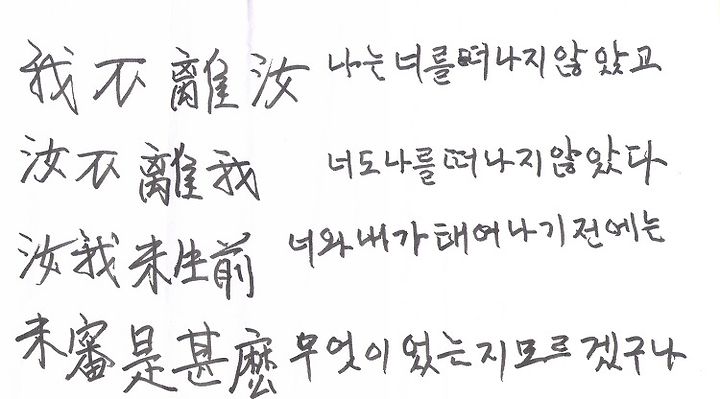 我不離汝 나는 너를 떠나지 않았고
汝不離我 너도 나를 떠나지 않았다
汝我未生前 너와 내가 태어나기 전에는
未審是甚麽 무엇이었는지 모르겠구나